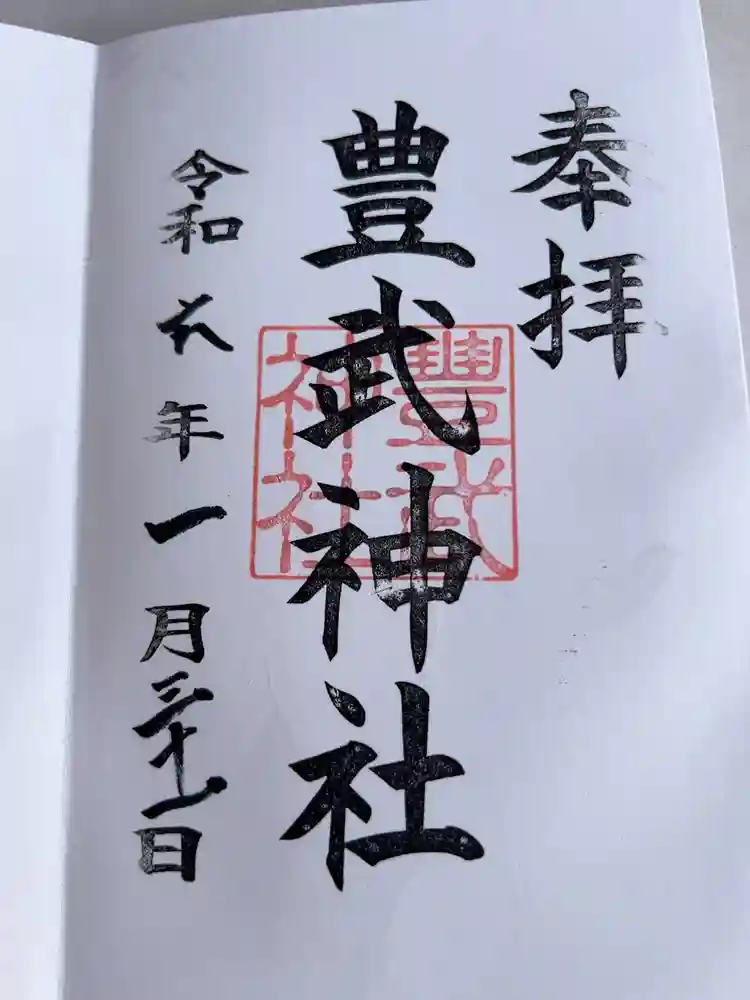 奉拝
豊武神社
豐武
神社
令和六年一月三十一日